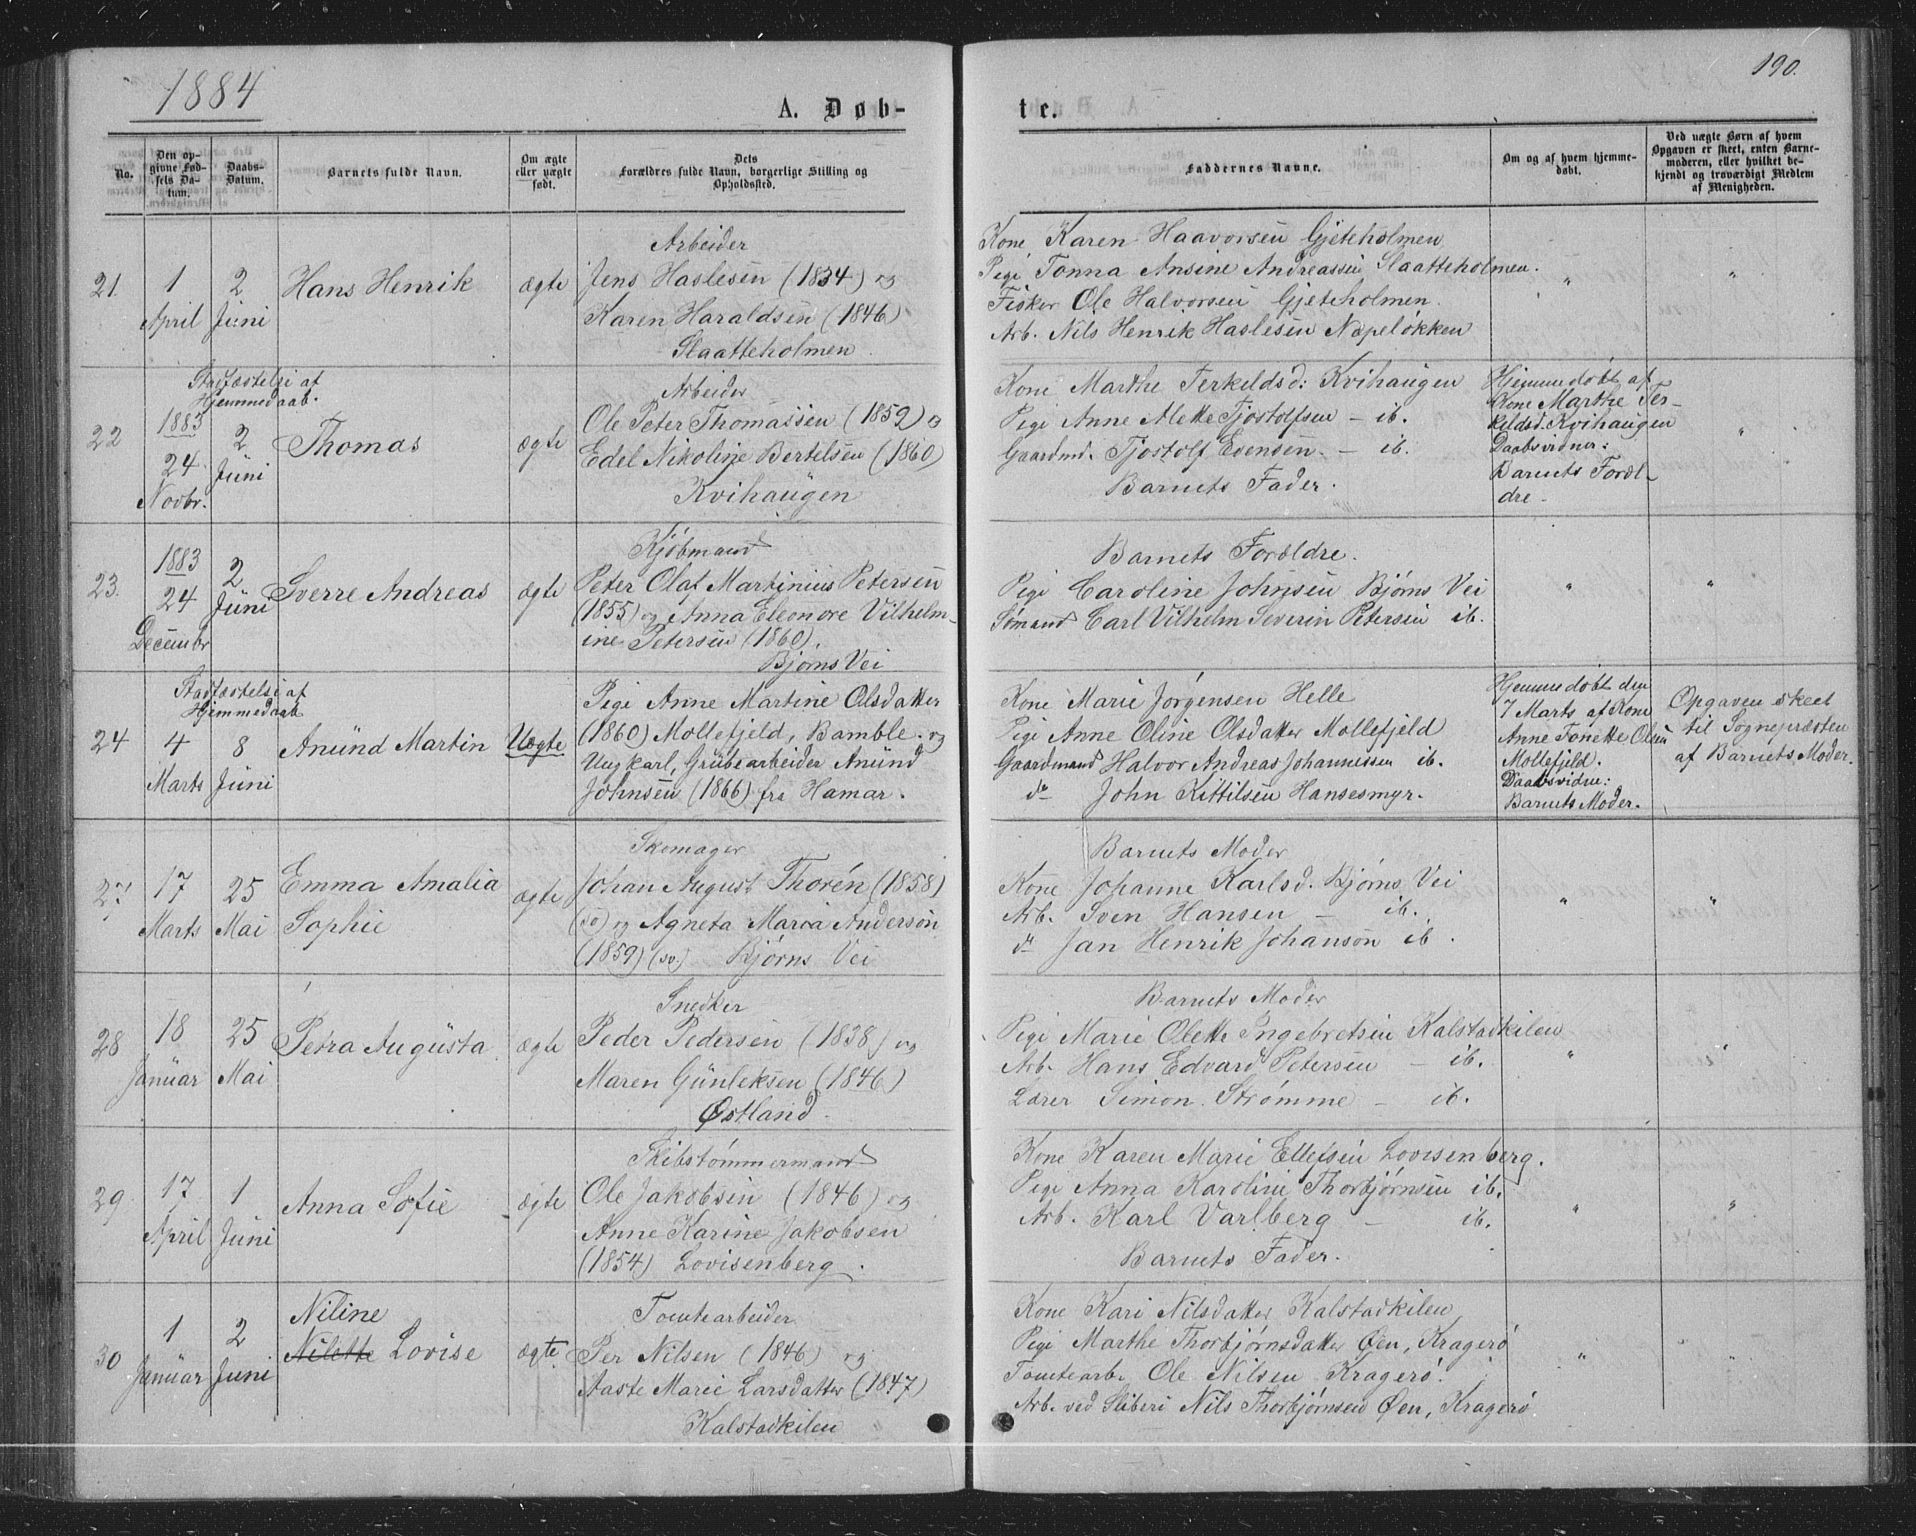 1884
190.
A. Døb-
te.
No.
Den op-
givne Fød-
sels Da-
tum.
Daabs-
Datum.
Barnets fulde Navn.
Om ægte
eller uægte
født.
Dets
Forældres fulde Navn, borgerlige Stilling og
Opholdssted.
Faddernes Navne.
Om og af hvem hjemme-
døbt.
Ved uægte Børn af hvem
Opgaven er skeet, enten Barne-
moderen, eller hvilket be-
kjendt og troværdigt Medlem
af Menigheden.
21.
1
April
2
Juni
Hans Henrik
ægte
Arbeider
Jens Haslesen (1834) og
Karen Haraldsen (1846)
Slaatteholmen
Kone Karen Haavorsen Gjeteholmen
Pige Tonna Ansine Andreassen Slaatteholmen.
Fisker Ole Halvorsen Gjeteholmen.
Arb. Nils Henrik Haslesen Næpeløkken
"
"
22
Stadfæstelse af
Hjemmedaab.
1883
24
Novbr.
2
Juni
Thomas
ægte
Arbeider
Ole Peter Thomassen (1859) og
Edel Nikoline Bertelsen (1860)
Kvihaugen
Kone Marthe Terkeldsd: Kvihaugen
Pige Anne Mette Tjostolfsen - ib.
Gaardmd. Tjostolf Evensen. - ib.
Barnets Fader.
Hjemmedøbt af
Kone Marthe Ter-
keldsd. Kvihaugen
Daabsvidner:
Barnets Foræl-
dre.
"
23.
1883
24
Decembr
2
Juni
Sverre Andreas
ægte
Kjøbmand
Peter Olaf Martinius Petersen
(1855) og Anna Eleonore Vilhelm-
ine Petersen (1860).
Bjørns Vei
Barnets Forældre.
Pige Caroline Johnsen Bjørns Vei
Sømand Carl Vilhelm Severin Petersen ib.
"
"
24
Stadfæstelse af
Hjemmedaab
4
Marts
8
Juni
Anund Martin
Uægte
Pige Anne Martine Olsdatter
(1860) Mollefjeld, Bamble. og
Ungkarl, Grubearbeider Anund
Johnsen (1866) fra Hamar.
Kone Marie Jørgensen Helle
Pige Anne Oline Olsdatter Mollefjeld
Gaardmand Halvor Andreas Johannessen ib.
do John Kittilsen Hansesmyr.
Hjemmedøbt den
7 Marts af Kone
Anne Tonette Olsen
Mollefjeld.
Daabsvidne:
Barnets Moder.
Opgaven skeet
til Sognepræsten
af Barnets Moder.
27.
17
Marts
25
Mai
Emma Amalia
Sophie
ægte
Skomager
Johan August Thorén (1858)
(sv) og Agneta Maria Anderson
(1859) (sv.) Bjørns Vei
Barnets Moder
Kone Johanne Karlsd. Bjørns Vei
Arb. Sven Hansen - ib.
do Jan Henrik Johanson ib.
"
"
28
18
Januar
25
Mai
Petra Augusta
ægte
Snedker
Peder Pedersen (1838) og
Maren Gunleksen (1846)
Østland.
Barnets Moder
Pige Marie Olette Ingebretsen Kalstadkilen
Arb. Hans Edvard Petersen - ib.
Lærer Simon Strømme - ib.
"
"
29
17
April
1
Juni
Anna Sofie
ægte
Skibstømmermand
Ole Jakobsen (1846) og
Anne Karine Jakobsen
(1854) Lovisenberg.
Kone Karen Marie Ellefsen Lovisenberg.
Pige Anna Karoline Thorbjørnsen ib.
Arb. Karl Varlberg - ib.
Barnets Fader.
"
"
30
1
Januar
2
Juni
Niline
Nilette Lovise
ægte
Tomtearbeider
Per Nilsen (1846) og
Aaste Marie Larsdatter (1847)
Kalstadkilen
Kone Kari Nilsdatter Kalstadkilen
Pige Marthe Thorbjørnsdatter Øen, Kragerø
Tomtearb. Ole Nilsen Kragerø.
Arb. ved Sliberi Nils Thorbjørnsen Øen, Kragerø
"
"